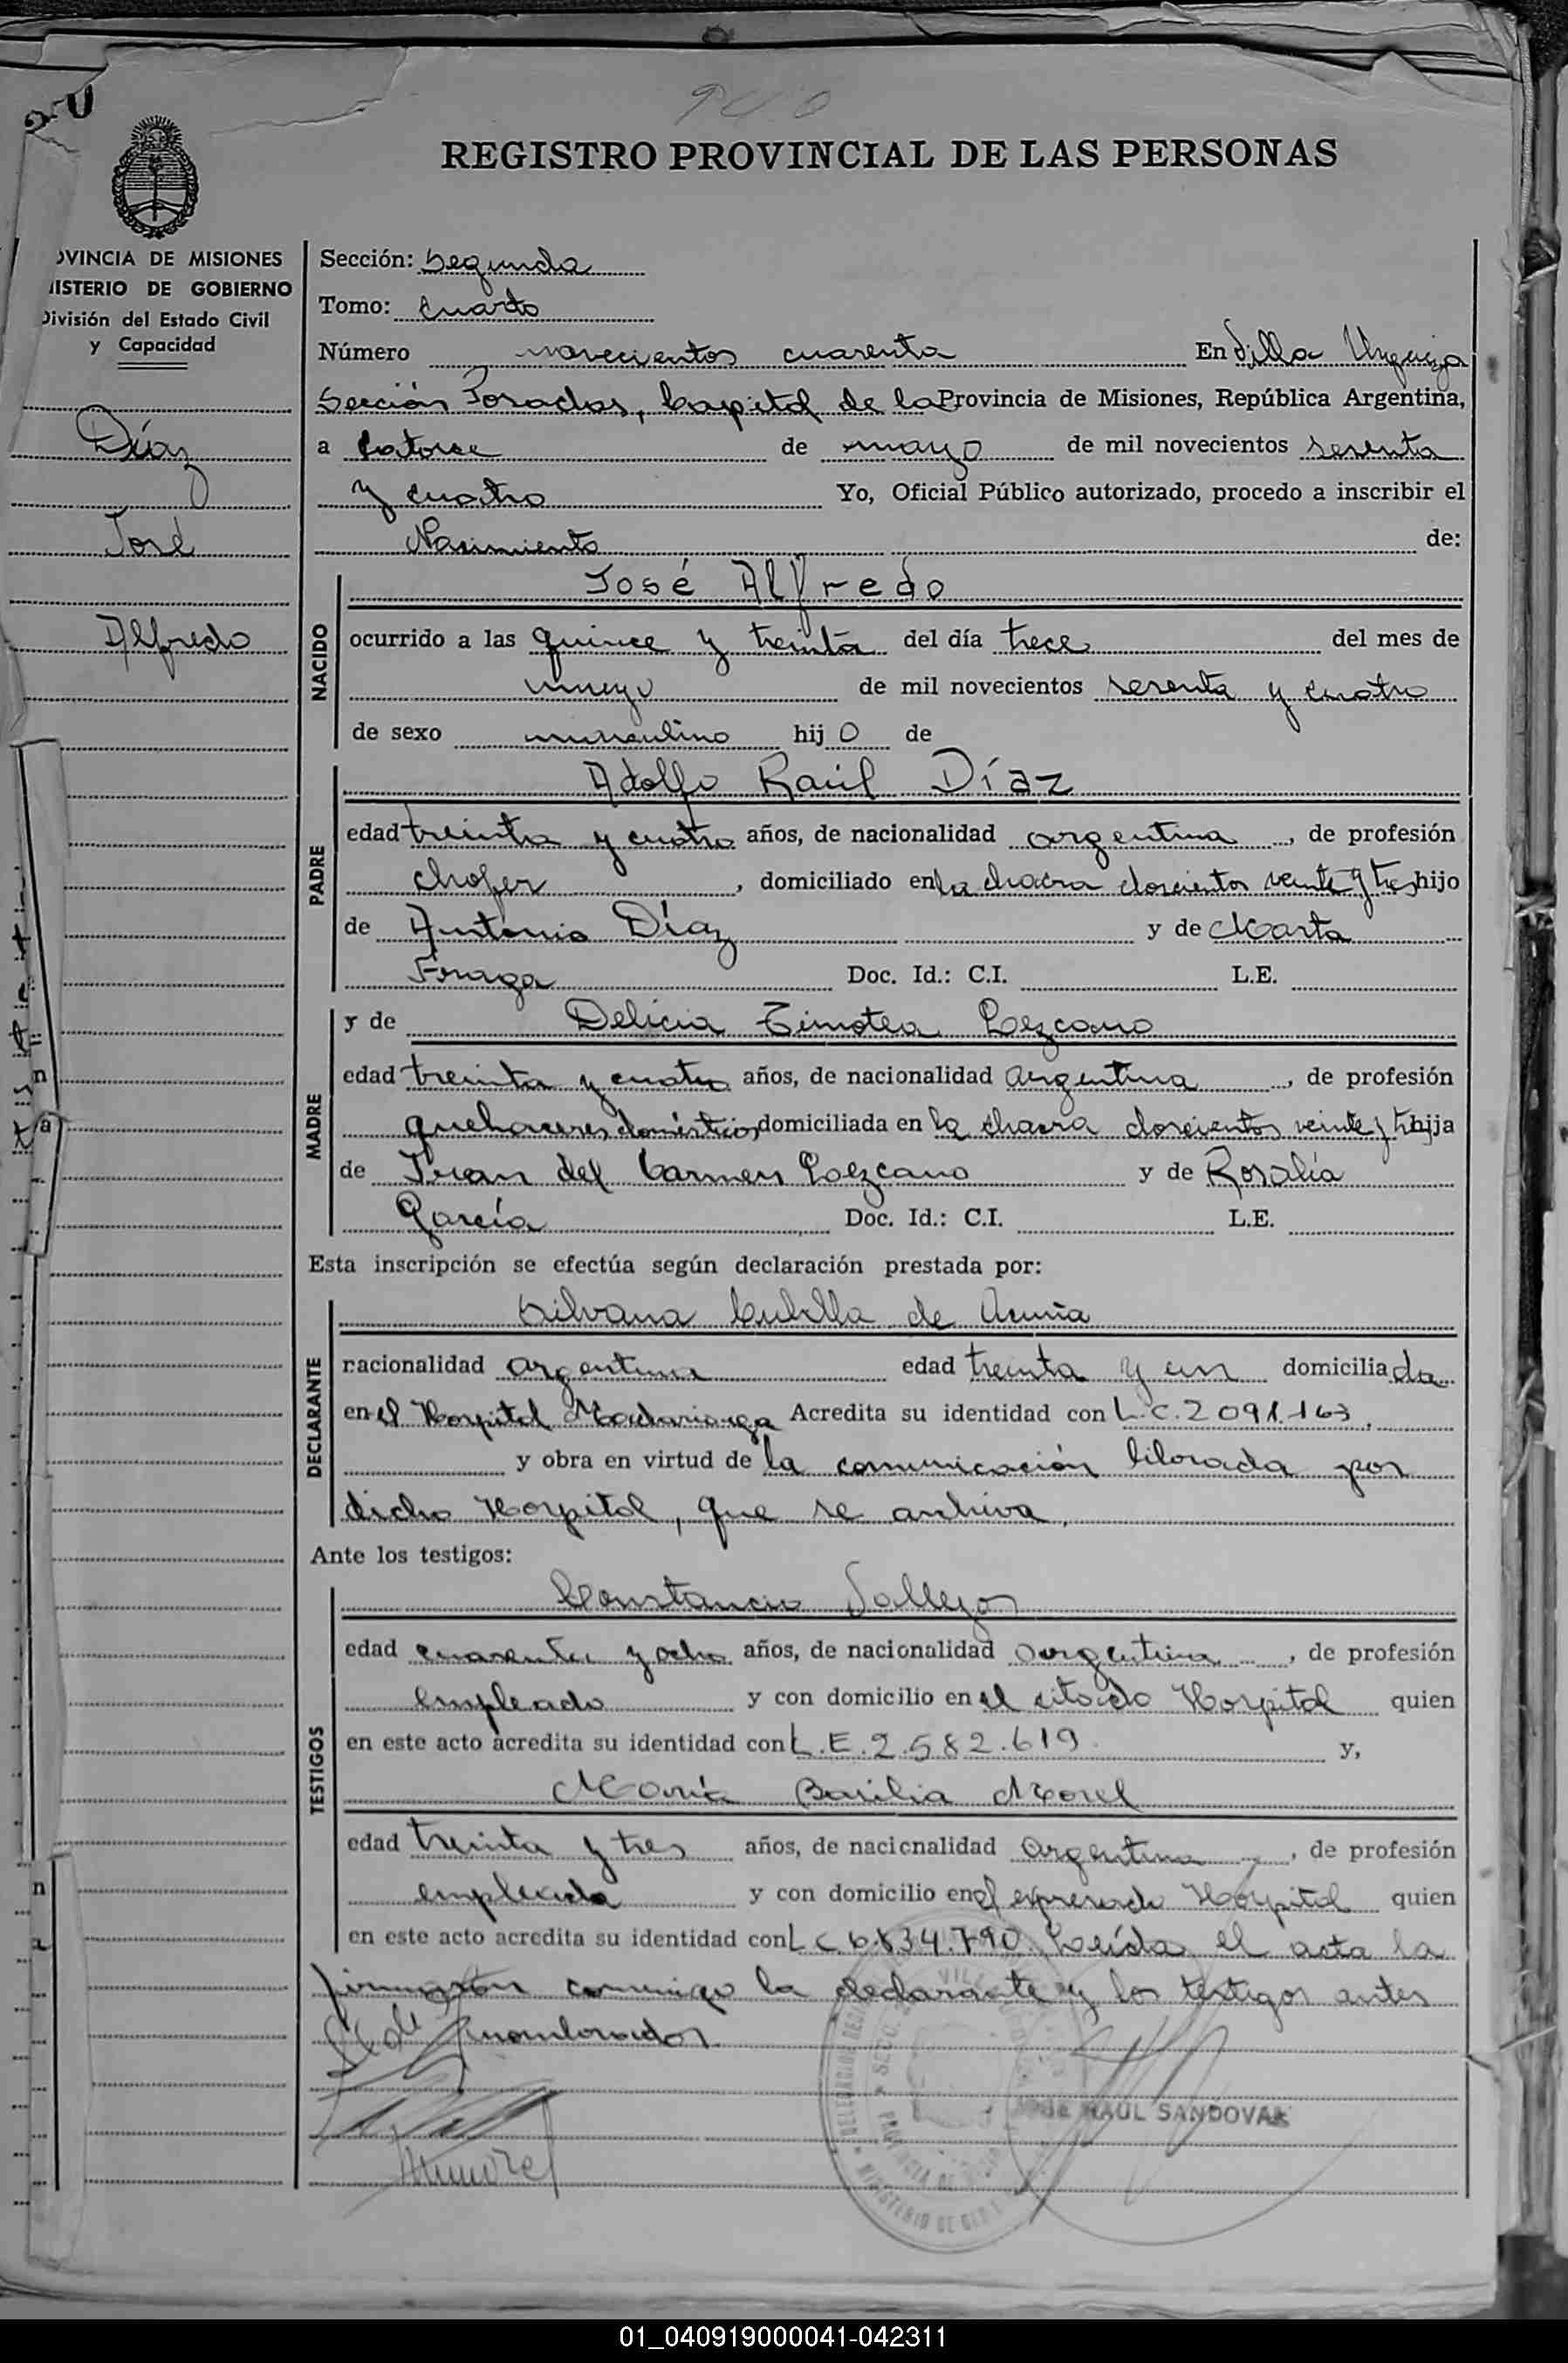 940
REGISTRO PROVINCIAL DE LAS PERSONAS
OVINCIA DE MISIONES
ISTERIO DE GOBIERNO
División del Estado Civil
y Capacidad
Díaz
José
Alfredo
Sección: Segunda
Tomo: Cuarto
Número novecientos cuarenta En Villa Urquiza
Sección Posadas, Capital de la Provincia de Misiones, República Argentina,
a Catorce de mayo de mil novecientos sesenta
y cuatro Yo, Oficial Público autorizado, procedo a inscribir el
Nacimiento de:
NACIDO
José Alfredo
ocurrido a las quince y treinta del día trece del mes de
mayo de mil novecientos sesenta y cuatro
de sexo masculino hijo de
PADRE
Adolfo Raúl Díaz
edad treinta y cuatro años, de nacionalidad argentina, de profesión
chofer, domiciliado en la chacra doscientos veinte y tres hijo
de Antonio Díaz y de Marta
Fraga Doc. Id.: C.I. L.E.
MADRE
y de Delicia Timotea Lezcano
edad treinta y cuatro años, de nacionalidad argentina, de profesión
quehaceres domésticos domiciliada en la chacra doscientos veinte y t hija
de Juan del Carmen Lezcano y de Rosalía
García Doc. Id.: C.I. L.E.
Esta inscripción se efectúa según declaración prestada por:
DECLARANTE
Silvana Cubilla de Acuña
nacionalidad argentina edad treinta y un domiciliada
en el Hospital Madariaga Acredita su identidad con L.C. 2091.163,
y obra en virtud de la comunicación librada por
dicho Hospital, que se archiva.
Ante los testigos:
TESTIGOS
Constancio Vallejos
edad cuarenta y ocho años, de nacionalidad argentina, de profesión
empleado y con domicilio en el citado Hospital quien
en este acto acredita su identidad con L.E. 2.582.619 y,
María Basilia Morel
edad treinta y tres años, de nacionalidad argentina, de profesión
empleada y con domicilio en el expresado Hospital quien
en este acto acredita su identidad con L C 6.834.790. Leída el acta la
firmaron conmigo la declarante y los testigos antes
nombrados.
RAUL SANDOVAL
01_040919000041-042311